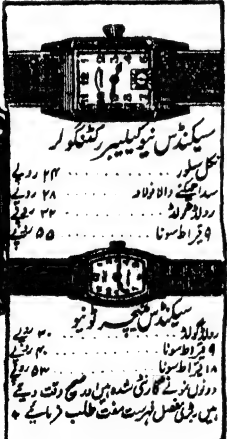 سیکنڈس نیو کیلیبر رکٹنگولر
نکل سلور ........ ۲۴ روپے
سدا چمکنے والا فولاد ........ ۲۸ روپے
رولڈ گولڈ ........ ۳۲ روپے
۹ قراط سونا ........ ۵۵ روپے
سیکنڈس میچر ٹونیو
رولڈ گولڈ ........ ۳۰ روپے
۹ قراط سونا ........ ۴۰ روپے
۱۸ قراط سونا ........ ۵۳ روپے
دونوں نمونے گارنٹی شدہ ہیں اور صحیح وقت دیتے
ہیں مفصل فہرست مفت طلب فرمائیے